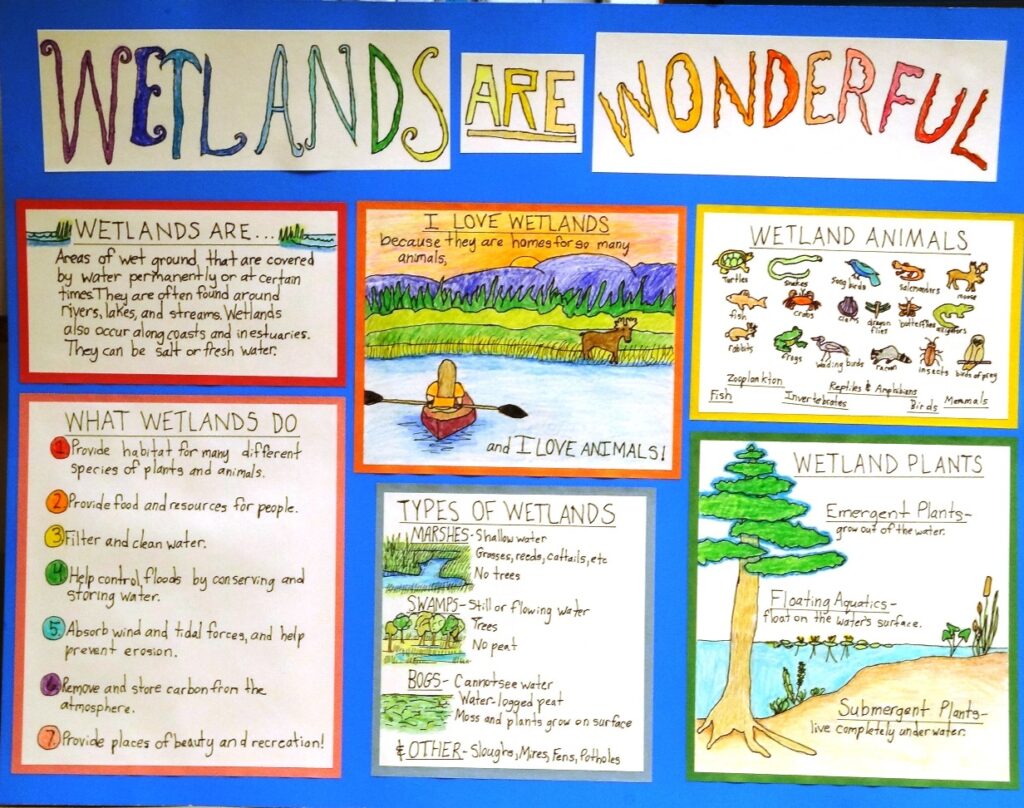 WETLANDS ARE WONDERFUL
WETLANDS ARE...
Areas of wet ground, that are covered
by water permanently or at certain
times. They are often found around
rivers, lakes, and streams. Wetlands
also occur along coasts and in estuaries.
They can be salt or fresh water.
WHAT WETLANDS DO
1. Provide habitat for many different
species of plants and animals.
2. Provide food and resources for people.
3. Filter and clean water.
4. Help control floods by conserving and
storing water.
5. Absorb wind and tidal forces, and help
prevent erosion.
6. Remove and store carbon from the
atmosphere.
7. Provide places of beauty and recreation!
I LOVE WETLANDS
because they are homes for so many
animals,
and I LOVE ANIMALS!
TYPES OF WETLANDS
MARSHES- Shallow water
Grasses, reeds, cattails, etc
No trees
SWAMPS- Still or flowing water
Trees
No peat
BOGS- Cannot see water
Water-logged peat
Moss and plants grow on surface
& OTHER- Sloughs, Mires, Fens, Potholes
WETLAND ANIMALS
Turtles snakes Song birds salamanders moose
fish crabs clams dragon flies butterflies alligators
rabbits frogs wading birds racoon insects birds of prey
Zooplankton Reptiles & Amphibians
Fish Invertebrates Birds Mammals
WETLAND PLANTS
Emergent Plants-
grow out of the water.
Floating Aquatics-
float on the water's surface.
Submergent Plants-
live completely underwater.